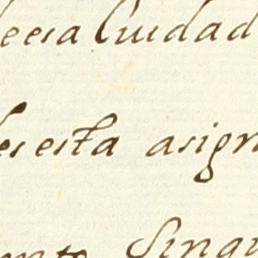 eesa Ciudad
es esta asign
ento Singu